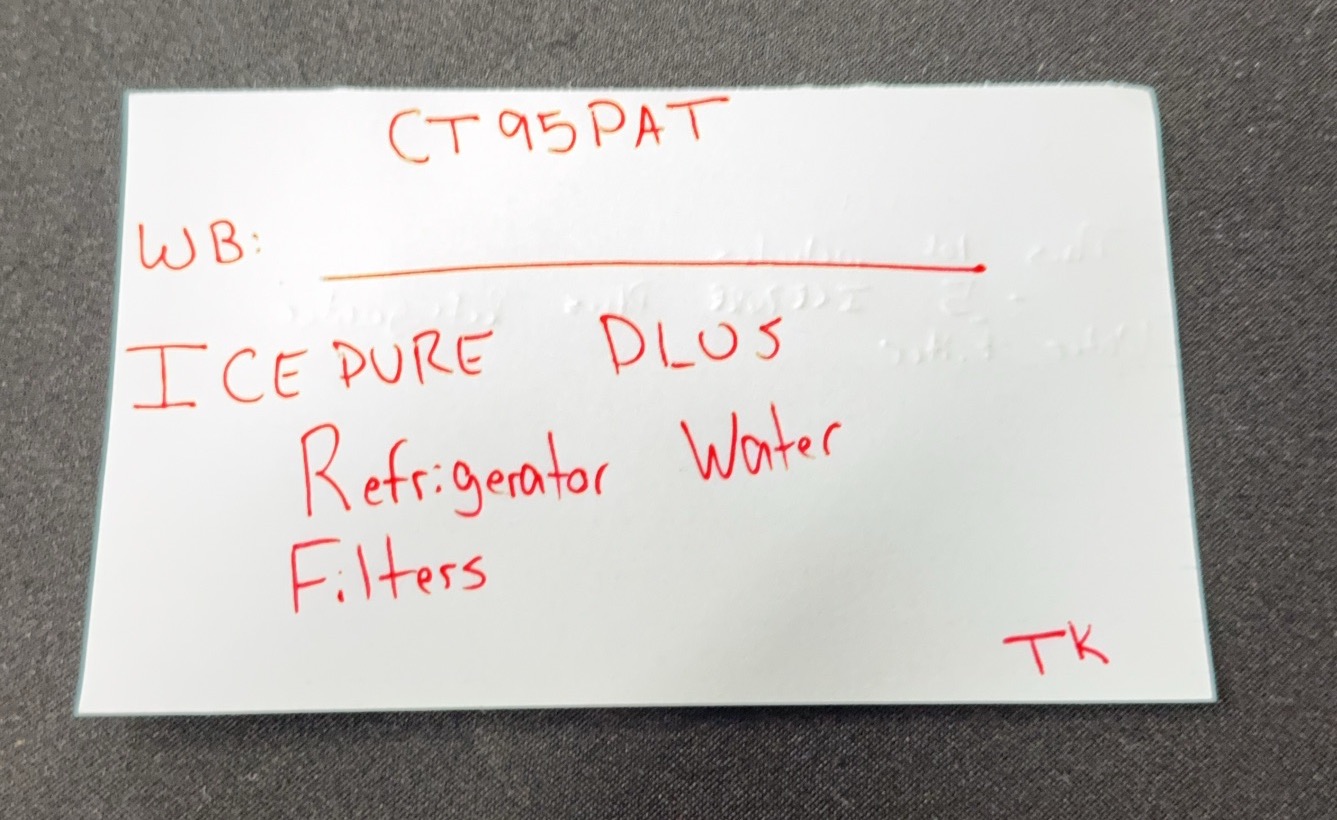 CT95PAT
WB:
ICEPURE PLUS
Refrigerator Water
Filters
TK